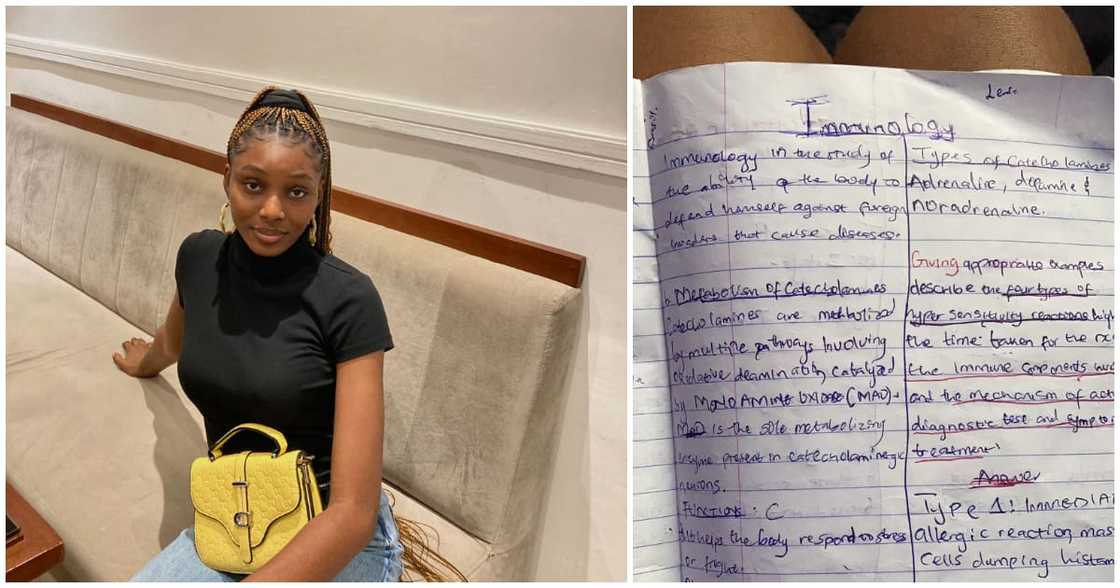 Immunology
Immunology in the study of
the ability of the body to
defend himself against foreign
that cause diseases.
Metabolism of Catecholamines
Catecholamines are metabolized
by multiple pathways Involving
oxidative deamination catalyzed
by MONO AMINE OXIDASE (MAO).
MAO is the sole metabolizing
enzyme present in catecholaminergic
neurons.
Functions : C
It helps the body respond to stress
or fright.
Types of Catecholamines
Adrenaline, dopamine &
noradrenaline.
Giving appropriate examples
describe the four types of
hyper sensitivity reactions
the time taken for the rx
the immune components
and the mechanism of
diagnostic test and
treatment
Answer
Type 1:
allergic reaction
cells dumping